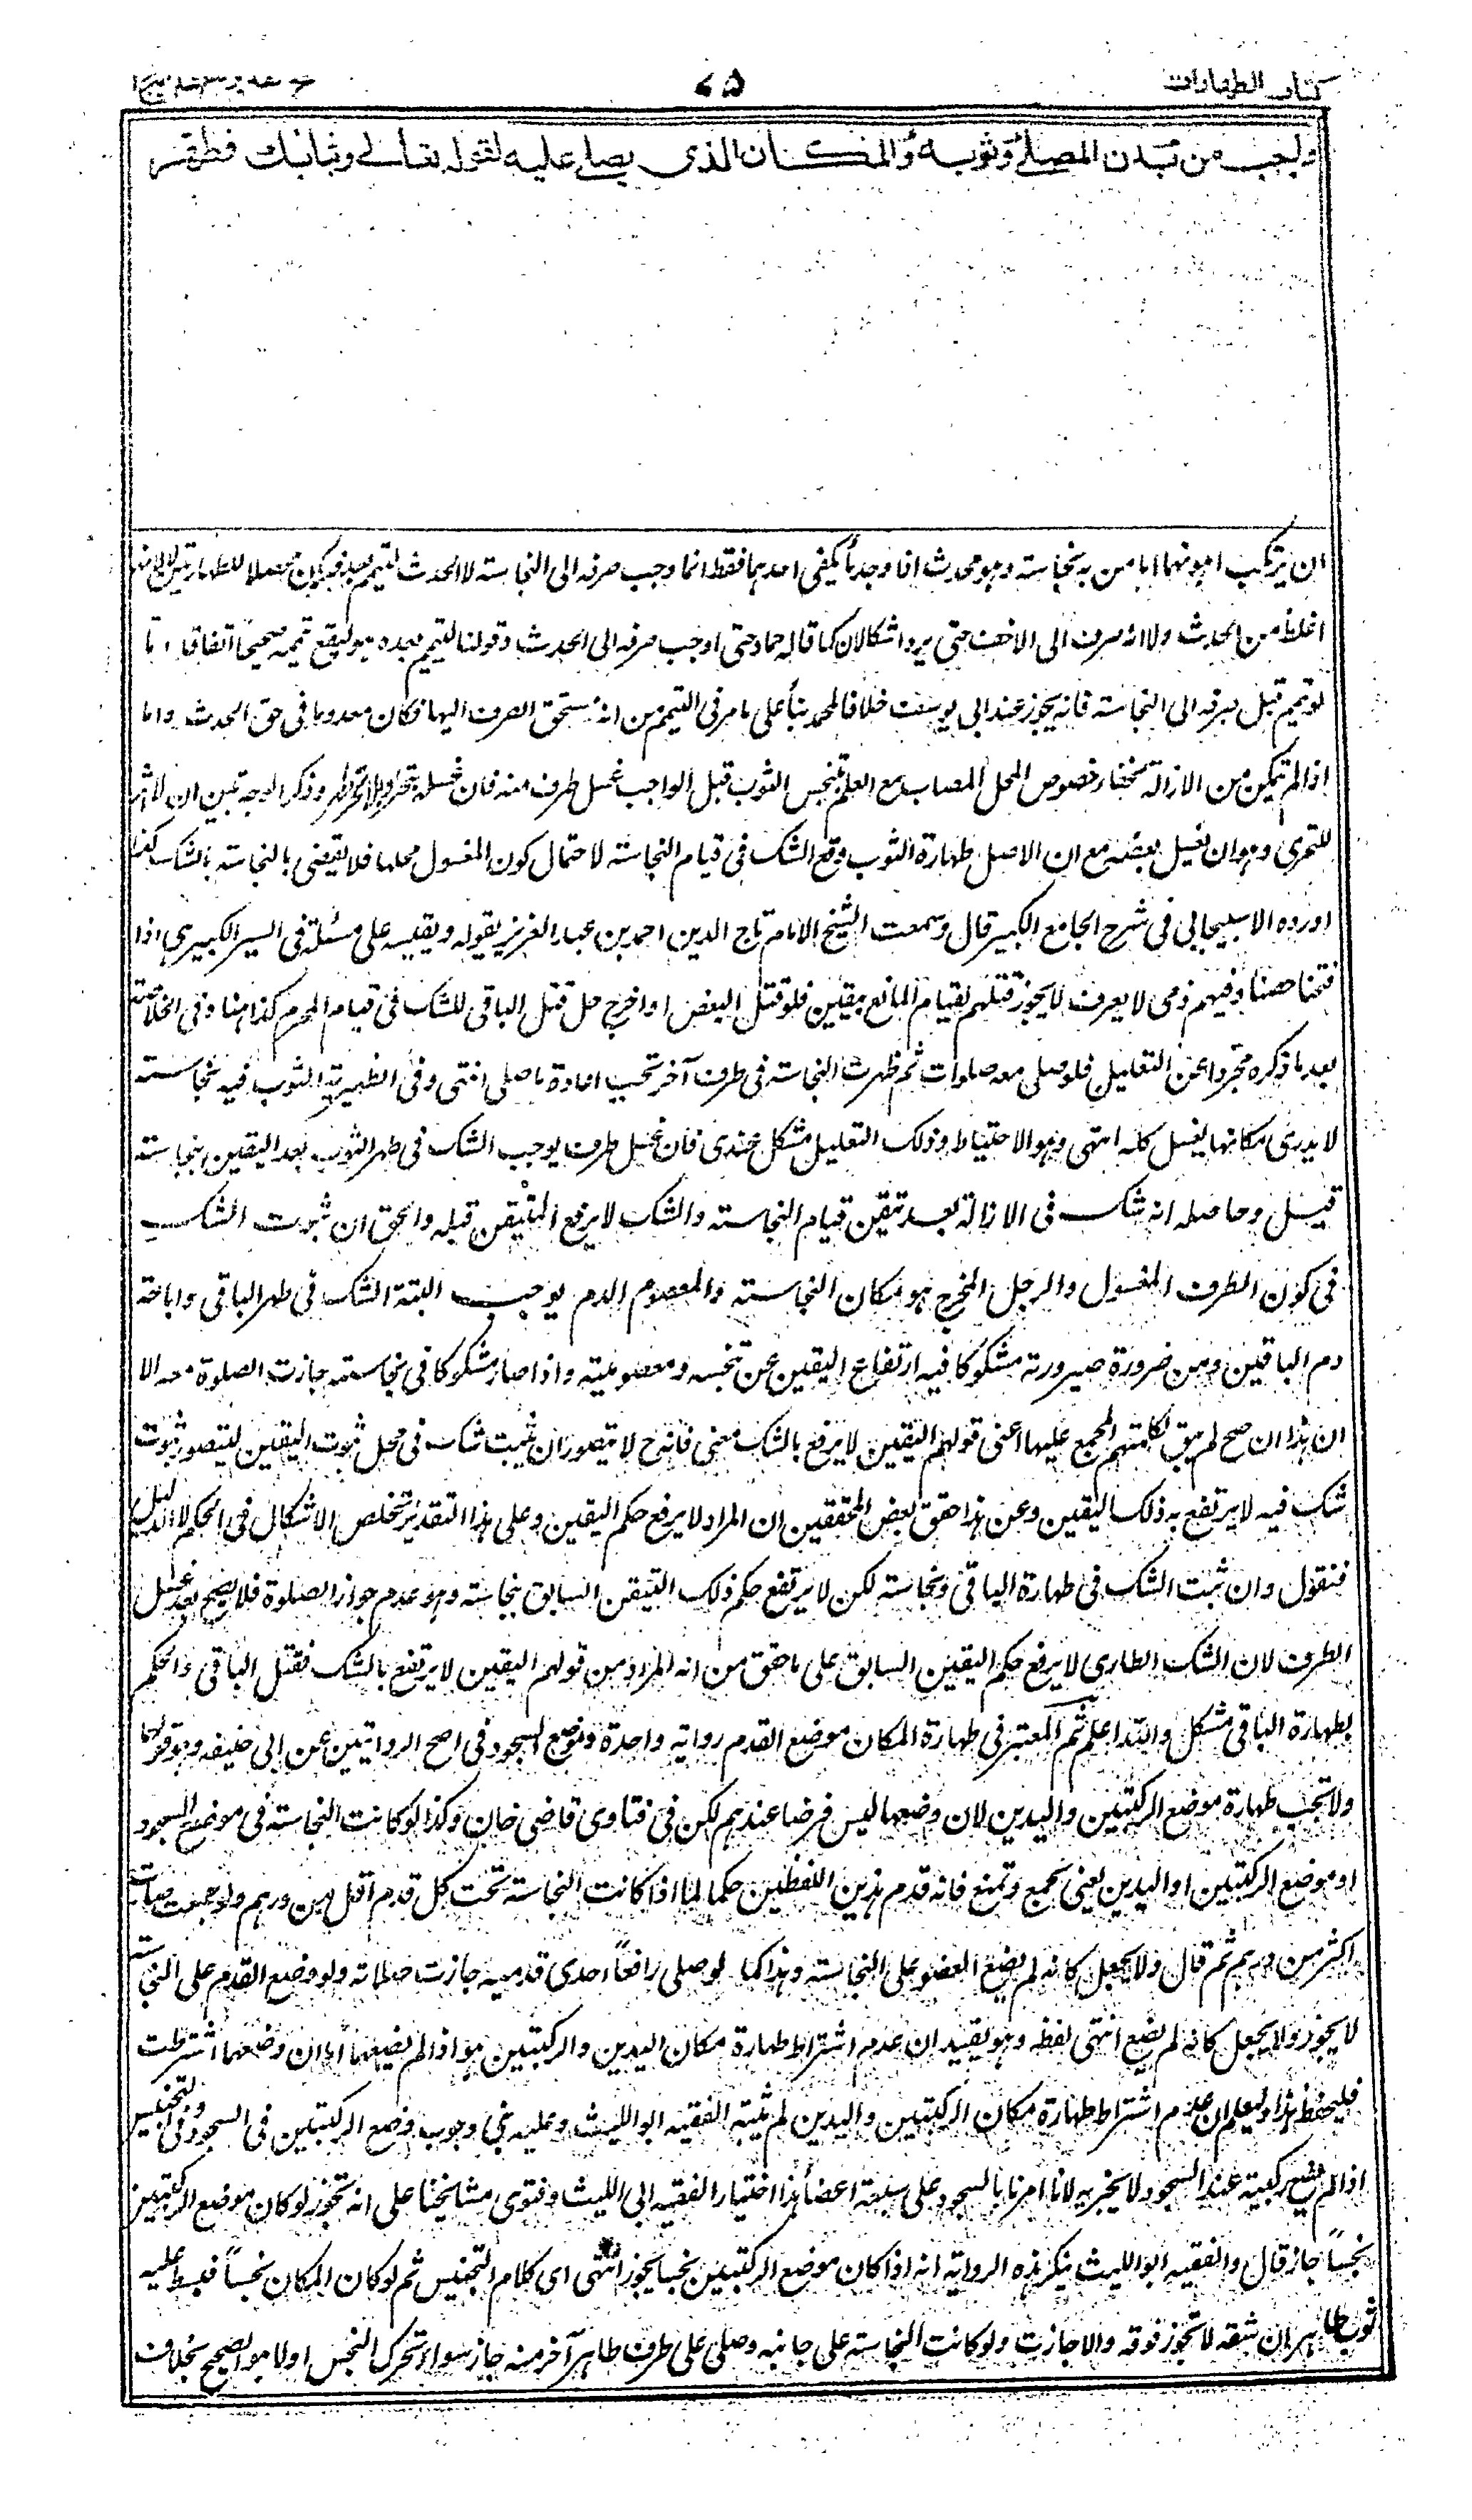 كتاب الطهارات
٧٥
فتح القدير مع الهداية ج ١
واجب من بدن المصلى وثوبه والمكان الذى يصلى عليه لقوله تعالى وثيابك فطهر
ان يرتكب اهونهما اما من به نجاسة وهو محدث اذا وجد ماء يكفى احدهما فقط انما وجب صرفه الى النجاسة لا الحدث ليتيمم بعده فيكون محصلا للطهارتين لا لانها
اغلظ من الحدث ولا انه صرف الى الاخف حتى يرد اشكالا كما قاله حماد حتى اوجب صرفه الى الحدث وقولنا ليتيمم بعده هو ليقع تيممه صحيحا اتفاقا اما
لو تيمم قبل صرفه الى النجاسة فانه يجوز عند ابى يوسف خلافا لمحمد بناء على ما مر فى التيمم من انه مستحق الصرف اليها فكان معدوما فى حق الحدث واما
اذا لم يتمكن من الازالة لخفاء خصوص المحل المصاب مع العلم بتنجس الثوب قبل الواجب غسل طرف منه فان غسله بتحر او بلا تحر طهر وذكر الوجه تبين ان لا اثر
للتحرى وهو ان بغسل بعضه مع ان الاصل طهارة الثوب وقع الشك فى قيام النجاسة لاحتمال كون المغسول محلها فلا يقضى بالنجاسة بالشك كذا
اورده الاسبيجابى فى شرح الجامع الكبير قال وسمعت الشيخ الامام تاج الدين احمد بن عبد العزيز يقوله ويقيسه على مسئلة فى السير الكبير هى اذا
فتحنا حصنا وفيهم ذمى لا يعرف لا يجوز قتلهم لقيام المانع بيقين فلو قتل البعض او اخرج حل قتل الباقى للشك فى قيام المحرم كذا هنا وفى الخلاصة
بعد ما ذكره مجردا عن التعليل فلو صلى معه صلوات ثم ظهرت النجاسة فى طرف آخر تجب اعادة ما صلى انتهى وفى الظهيرية الثوب فيه نجاسة
لا يدرى مكانها يغسل كله انتهى وهو الاحتياط وذلك التعليل مشكل عندى فان غسل طرف يوجب الشك فى طهر الثوب بعد اليقين بنجاسته
قبل وحاصله انه شك فى الازالة بعد تيقن قيام النجاسة والشك لا يرفع المتيقن قبله والحق ان ثبوت الشك
فى كون الطرف المغسول والرجل المخرج هو مكان النجاسة والمعصوم الدم يوجب البتة الشك فى طهر الباقى واباحة
دم الباقين ومن ضرورة صيرورته مشكوكا فيه ارتفاع اليقين عن تنجسه ومعصوميته واذا صار مشكوكا فى نجاسته جازت الصلوة معه الا
ان هذا ان صح لم يبق لكلمتهم المجمع عليها اعنى قولهم اليقين لا يرفع بالشك معنى فانه ح لا يتصور ان يثبت شك فى محل ثبوت اليقين ليتصور ثبوت
شك فيه لا يرتفع به ذلك اليقين وعن هذا حقق بعض المحققين ان المراد لا يرفع حكم اليقين وعلى هذا التقدير يخلص الاشكال فى الحكم لا الدليل
فنقول وان ثبت الشك فى طهارة الباقى ونجاسته لكن لا يرتفع حكم ذلك التيقن السابق بنجاسته وهو عدم جواز الصلوة فلا يصح بعد غسل
الطرف لان الشك الطارى لا يرفع حكم اليقين السابق على ما حقق من انه المراد من قولهم اليقين لا يرتفع بالشك فقتل الباقى والحكم
بطهارة الباقى مشكل والله اعلم ثم المعتبر فى طهارة المكان موضع القدم رواية واحدة وموضع السجود فى اصح الروايتين عن ابى حنيفه وهو قولهما
ولا تجب طهارة موضع الركبتين واليدين لان وضعها ليس فرضا عندهم لكن فى فتاوى قاضى خان وكذا لو كانت النجاسة فى موضع السجود
او موضع الركبتين او اليدين يعنى تجمع وتمنع فانه قدم هذين اللفظين حكما لما اذا كانت النجاسة تحت كل قدم اقل من درهم ولو جمعت صارت
اكثر من درهم ثم قال ولا يجعل كانه لم يضع العضو على النجاسة وهذا كما لو صلى رافعا احدى قدميه جازت صلاته ولو وضع القدم على النجاسة
لا يجوز ولا يجعل كانه لم يضع انتهى لفظه وهو يفيد ان عدم اشتراط طهارة مكان اليدين والركبتين هو اذا لم يضعهما اما ان وضعهما اشترطت
فليحفظ هذا وليعلم ان عدم اشتراط طهارة مكان الركبتين واليدين لم يثبته الفقيه ابو الليث وعليه بنى وجوب وضع الركبتين فى السجود وفى التجنيس
اذا لم يضع ركبتيه عند السجود لا يجزيه لانا امرنا بالسجود على سبعة اعضاء هذا اختيار الفقيه ابى الليث وفتوى مشايخنا على انه تجوز لو كان موضع الركبتين
نجسا جاز قال والفقيه ابو الليث ينكر هذه الرواية انه اذا كان موضع الركبتين نجسا يجوز انتهى اى كلام التجنيس ثم لو كان المكان نجسا فبسط عليه
ثوب طاهر ان شفه لا تجوز فوقه والا جازت ولو كانت النجاسة على جانبه وصلى على طرف طاهر آخر منه جاز سواء تحرك النجس او لا هو الصحيح بخلاف